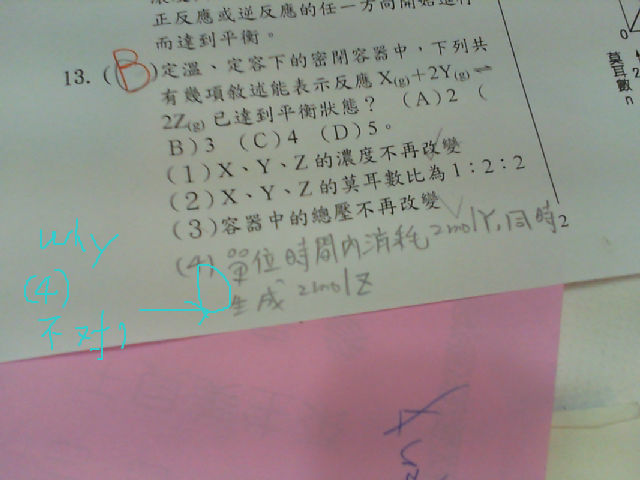 正反應或逆反應的任一方向開始進行
而達到平衡。
13. (B)定溫、定容下的密閉容器中,下列共
有幾項敘述能表示反應X(g)+2Y(g)⇌
2Z(g)已達到平衡狀態? (A)2 (
B)3 (C)4 (D)5。
(1)X、Y、Z的濃度不再改變
(2)X、Y、Z的莫耳數比為1:2:2
(3)容器中的總壓不再改變
(4)單位時間內消耗2molY,同時
生成2molZ
why
(4)
不对
莫
耳
數
n
0
2
2